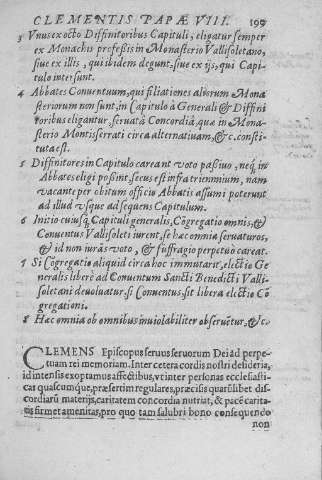 CLEMENTIS PAPÆ VIII. 199
3 Vnus ex octo Diffinitoribus Capituli, eligatur semper
ex Monachis professis in Monasterio Vallisoletano,
siue ex illis, qui ibidem degunt, siue ex ijs, qui Capi-
tulo intersunt.
4 Abbates Conuentuum, qui filiationes aliorum Mona
steriorum non sunt, in Capitulo à Generali & Diffini
toribus eligantur, seruata Concordia, qua in Mona-
sterio Montisserrati circa alternatiuam, &c. consti-
tuta est.
5 Diffinitores in Capitulo careant voto passiuo, neq; in
Abbates eligi possint, secus est infra triennium, nam
vacante per obitum officio Abbatis assumi poterunt
ad illud vsque ad sequens Capitulum.
6 Initio cuiusq; Capituli generalis, Cõgregatio omnis, &
Conuentus Vallisoleti iurent, se hæc omnia seruaturos,
& id non iurãs voto, & suffragio perpetuò careat.
7 Si Cõgregatio aliquid circa hoc immutarit, electio Ge
neralis liberè ad Conuentum Sancti Benedicti Valli-
soletani deuoluatur. si Conuentus, sit libera electio Cõ
gregationi.
8 Hæc omnia ab omnibus inuiolabiliter obseruẽtur, &c.
CLEMENS Episcopus seruus seruorum Dei ad perpe-
tuam rei memoriam. Inter cetera cordis nostri desideria,
id intensis exoptamus affectibus, vt inter personas ecclesiasti-
cas quascumque, præsertim regulares, præcisis quarũlibet dis-
cordiarũ materijs, caritatem concordia nutriat, & pacẽ carita-
tis firmet amœnitas, pro quo tam salubri bono consequendo
non